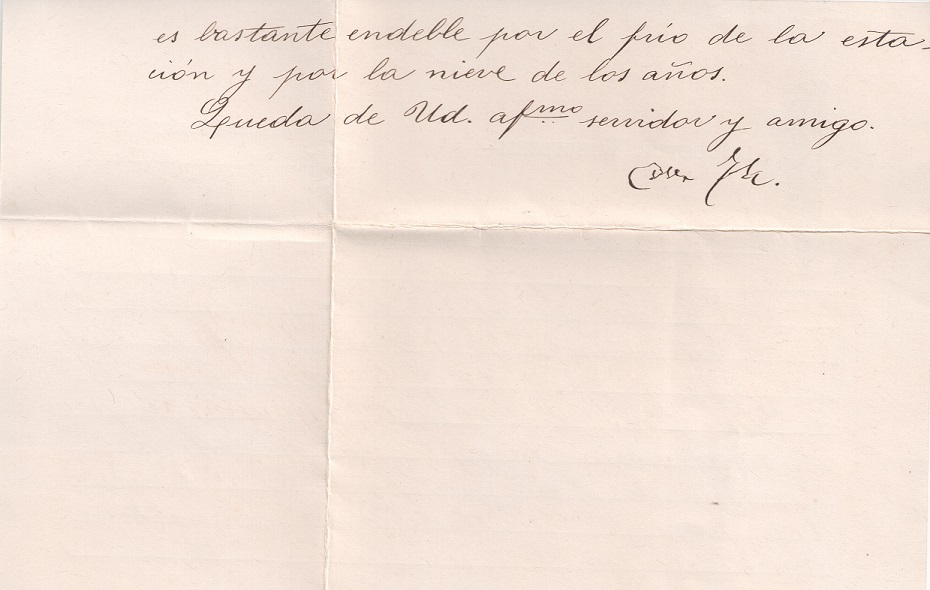 es bastante endeble por el frío de la esta-
ción y por la nieve de los años.
Queda de Ud. afmo servidor y amigo.